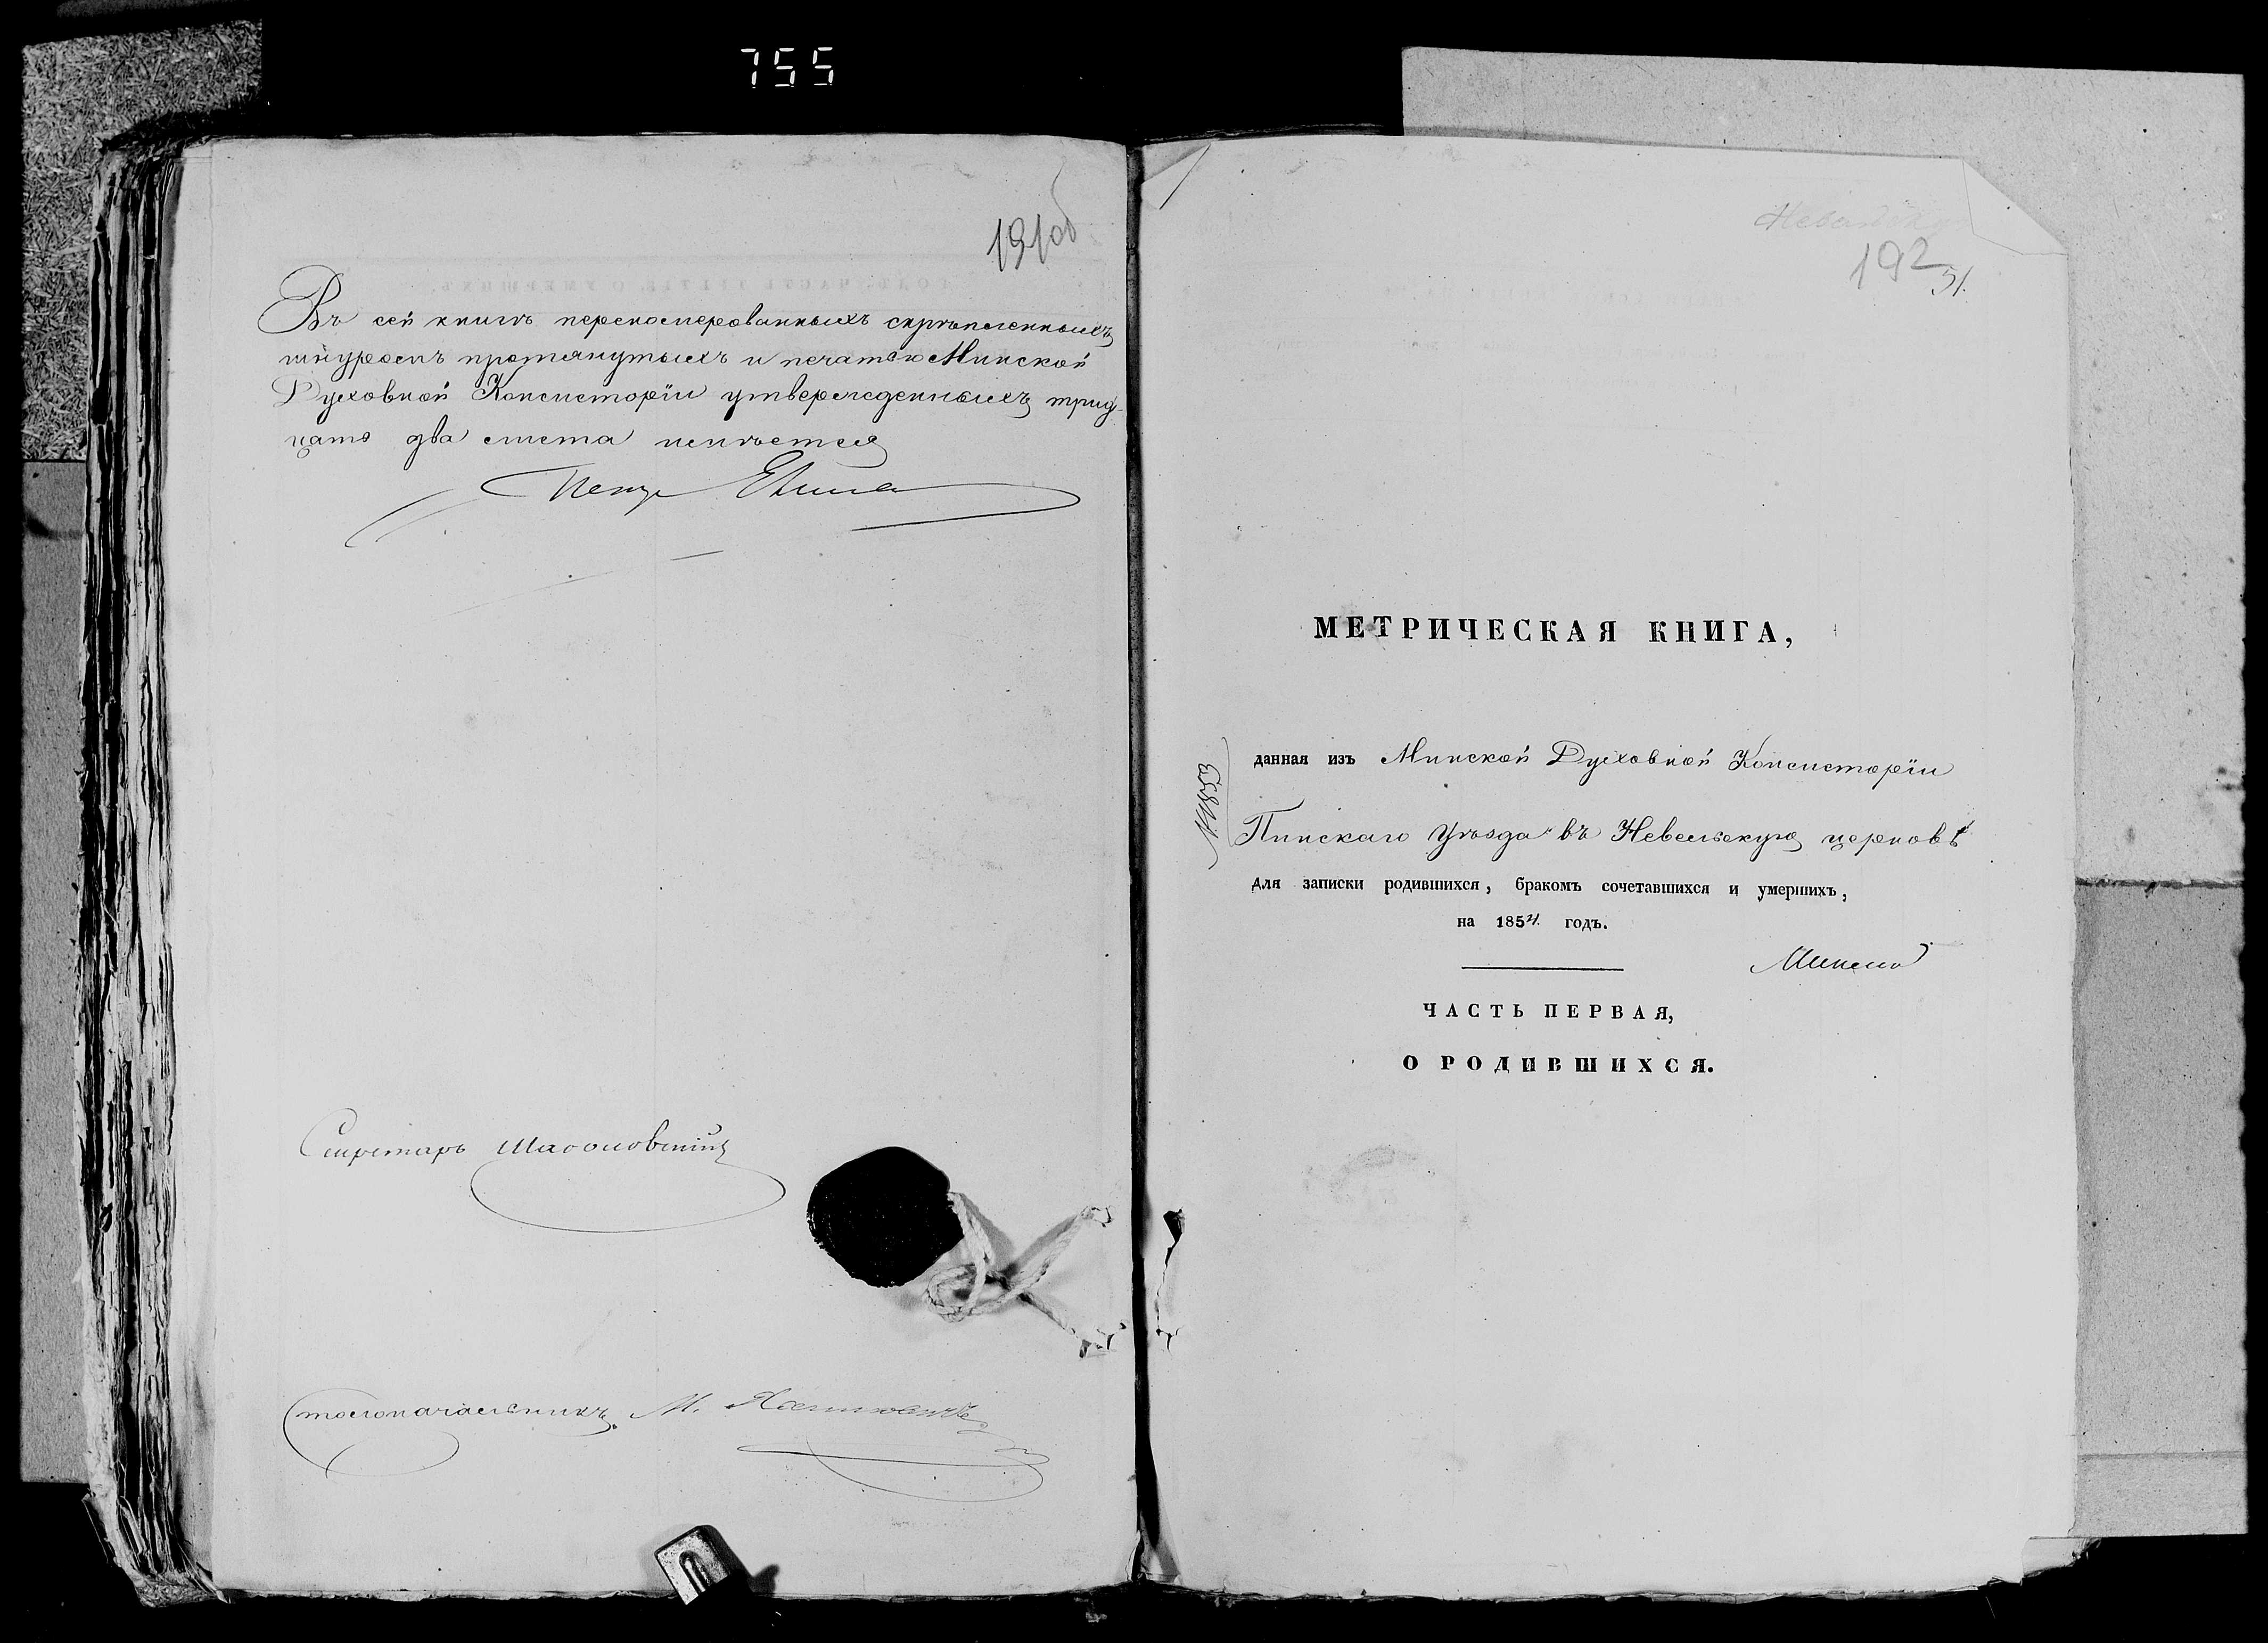 755
191об
Въ сей книгѣ перенумерованныхъ скрѣпленныхъ
шнуромъ протянутыхъ и печатью Минской
Духовной Консисторіи утвержденныхъ трид-
цать два листа имѣется
Секретарь
Столоначальникъ М.
192
51.
МЕТРИЧЕСКАЯ КНИГА,
данная изъ Минской Духовной Консисторіи
Пинскаго Уѣзда въ Невельскую церковь
для записки родившихся, бракомъ сочетавшихся и умершихъ,
на 1854 годъ.
ЧАСТЬ ПЕРВАЯ,
О РОДИВШИХСЯ.